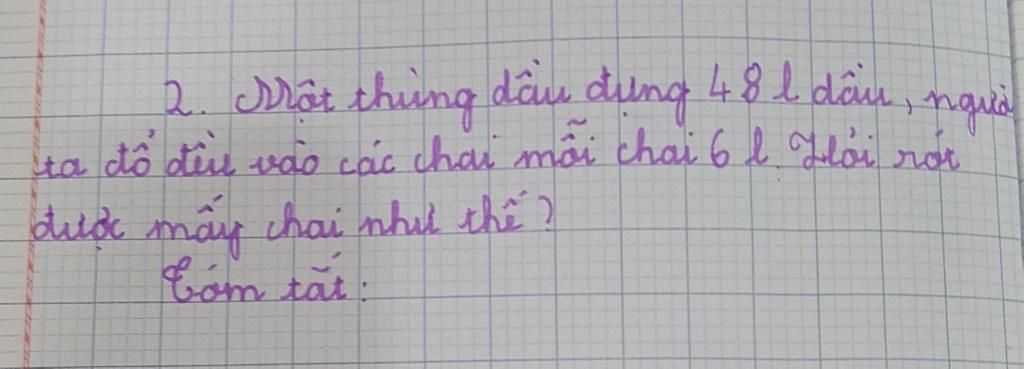 2. Một thùng dầu đựng 48 l dầu, người
ta đổ đều vào các chai mỗi chai 6 l. Hỏi rót
được mấy chai như thế?
Tóm tắt: